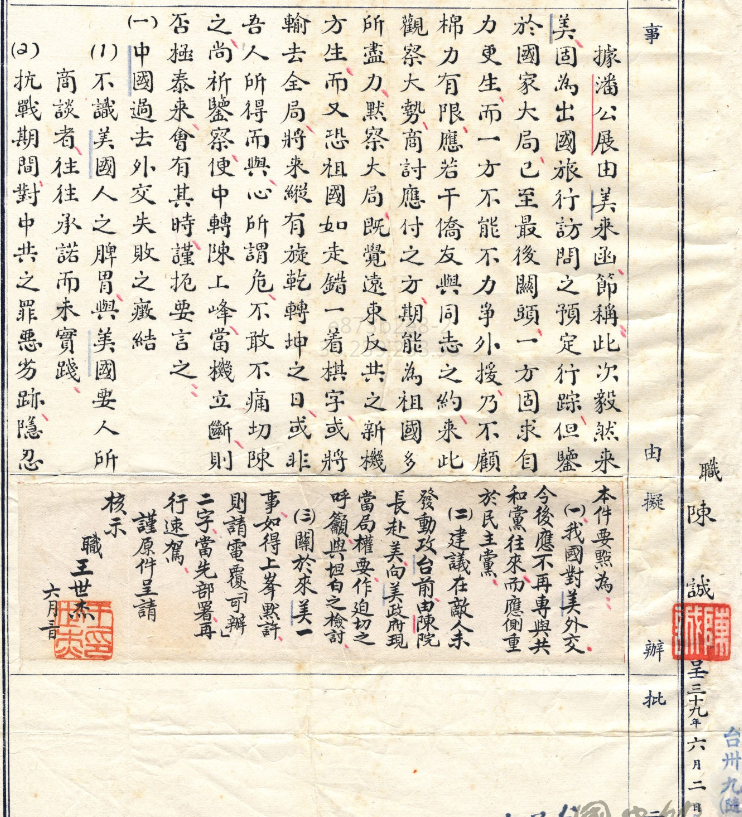 職 陳 誠
呈三十九年六月二日
台卅九
事 由 擬 辦 批
據潘公展由美來函節稱此次毅然來
美固為出國旅行訪問之預定行踪但鑒
於國家大局已至最後關頭一方固求自
力更生而一方不能不力爭外援乃不顧
棉力有限應若干僑友與同志之約來此
觀察大勢商討應付之方期能為祖國多
所盡力默察大局既覺遠東反共之新機
方生而又恐祖國如走錯一着棋字或將
輸去全局將來縱有旋乾轉坤之日或非
吾人所得而與心所謂危不敢不痛切陳
之尚祈鑒察便中轉陳上峰當機立斷則
否極泰來會有其時謹扼要言之
(一)中國過去外交失敗之癥結
(1)不識美國人之脾胃與美國要人所
商談者往往承諾而未實踐
(2)抗戰期間對中共之罪惡劣跡隱忍
本件要點為
(一)我國對美外交
今後應不再專與共
和黨往來而應側重
於民主黨
(二)建議在敵人未
發動攻台前由陳院
長赴美向美政府現
當局權要作迫切之
呼籲與坦白之檢討
(三)關於來美一
事如得上峯默許
則請電覆「可辦」
二字當先部署再
行速駕
謹原件呈請
核示
職王世杰
六月三日